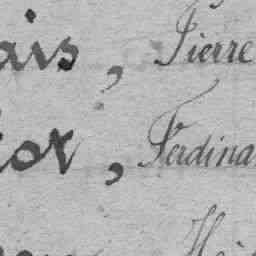 ais, Pierre
tor, Ferdina